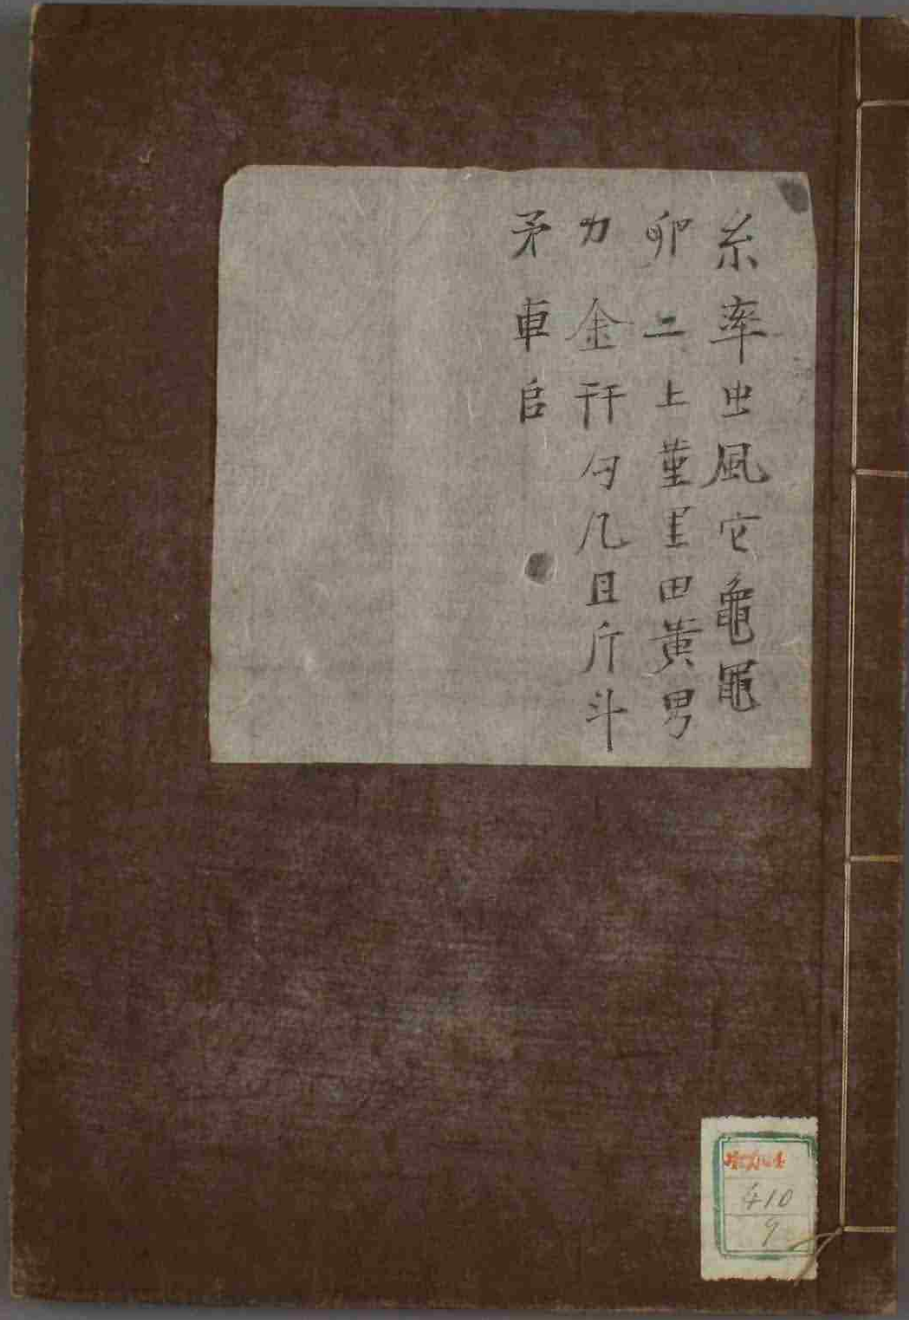 糸率虫風它龜黽
卵二土堇里田黄男
力金幵勺几且斤斗
矛車𠂤
410
9